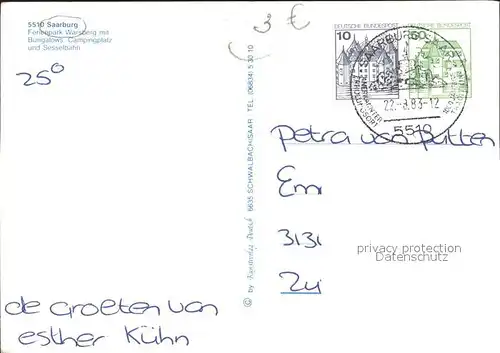 5510 Saarburg
Ferienpark Warsberg mit
Bungalows Campingplatz
und Sesselbahn
3 €
25°
DEUTSCHE BUNDESPOST
10
DEUTSCHE BUNDESPOST
50
SAARBURG
22.-8.83-12
5510
© by Kunstverlag 6635 SCHWALBACH/SAAR TEL. (06834) 5 30 10
Petra van Putten
Em
3131
Zu
privacy protection
Datenschutz
de groeten van
esther Kühn